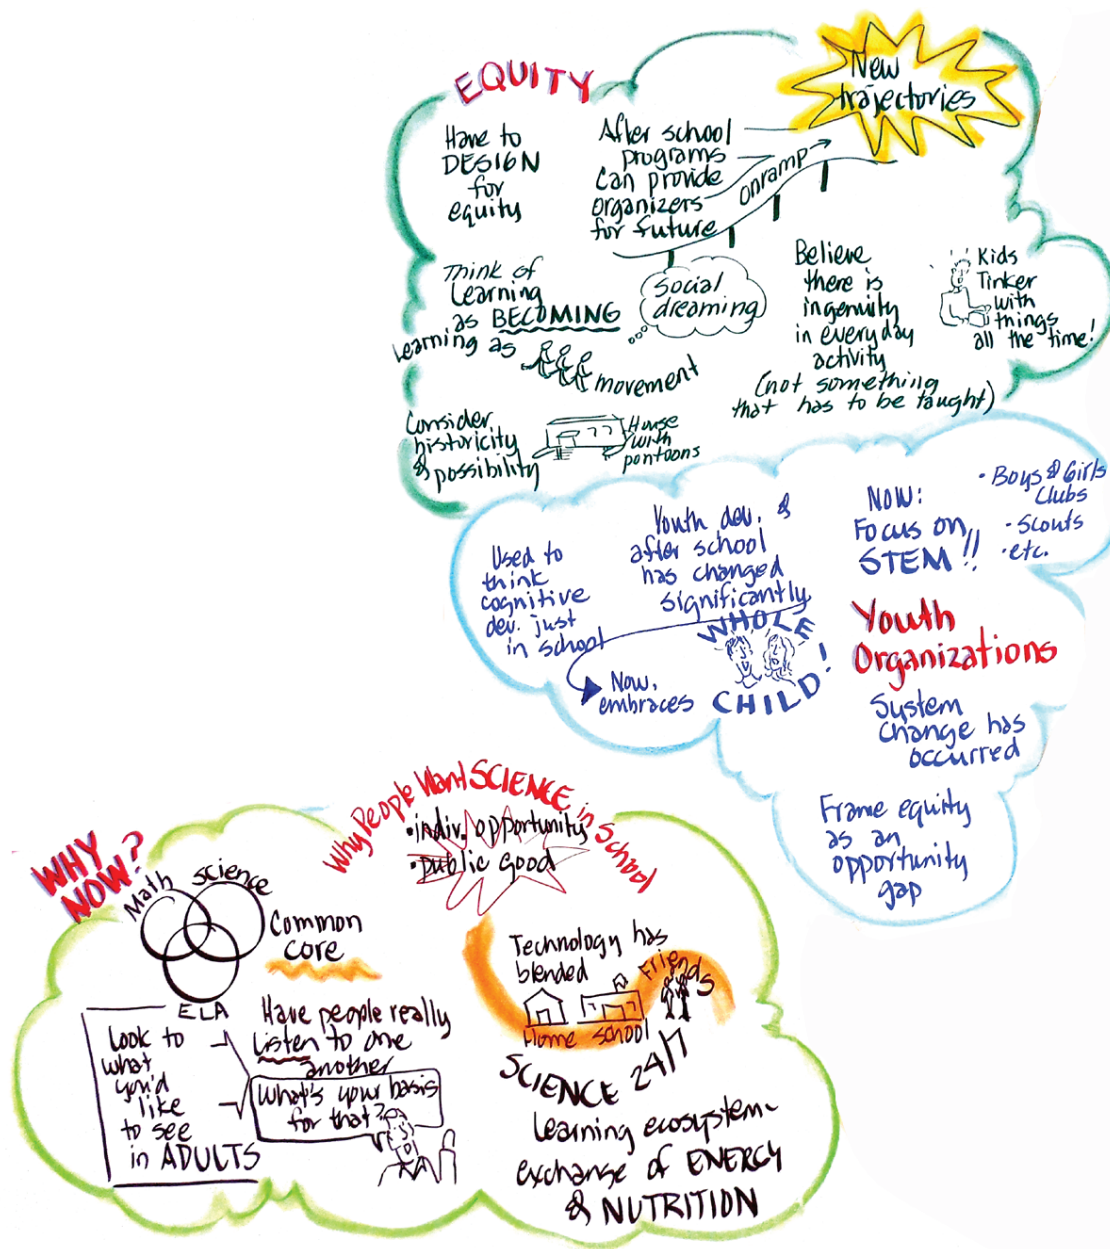 EQUITY
New
trajectories
Have to
DESIGN
for
equity
After school
programs
can provide
organizers
for future
onramp
Think of
Learning
as BECOMING
Learning as
movement
social
dreaming
Believe
there is
ingenuity
in everyday
activity
(not something
that has to be taught)
Kids
Tinker
with
things
all the time!
Consider
historicity
& possibility
House
with
pontoons
Used to
think
cognitive
dev. just
in school
Youth dev. &
after school
has changed
significantly
Now,
embraces
WHOLE
CHILD!
Now:
Focus on
STEM!!
• Boys & Girls
Clubs
• Scouts
• etc.
Youth
Organizations
System
change has
occurred
Frame equity
as an
opportunity
gap
WHY
NOW?
Math
science
ELA
Common
core
Why People Want SCIENCE in School
• indiv. opportunity
• public good
Look to
what
you'd
like
to see
in ADULTS
Have people really
Listen to one
another
What's your basis
for that?
Technology has
blended
Friends
Home school
SCIENCE 24/7
Learning ecosystem~
exchange of ENERGY
& NUTRITION